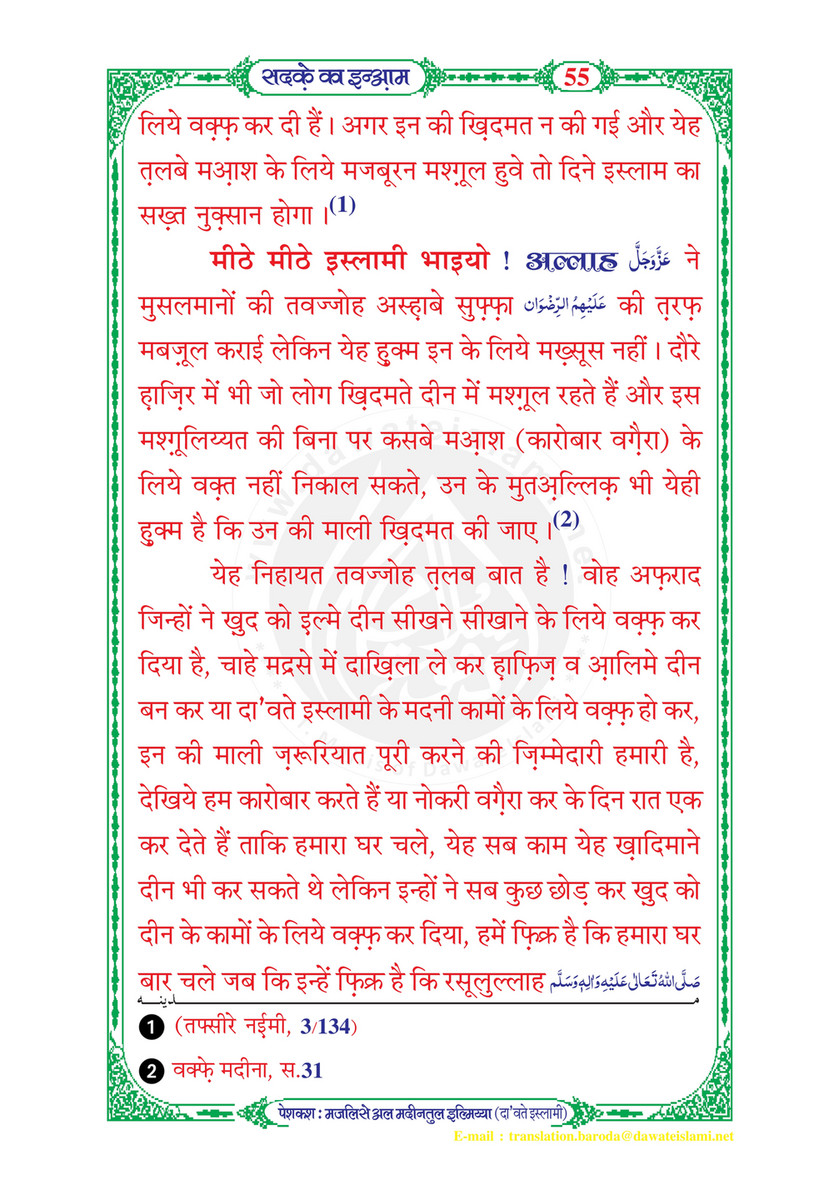 सदक़े का इन्आ़म
55
लिये वक़्फ़ कर दी हैं । अगर इन की ख़िदमत न की गई और येह
त़लबे मआ़श के लिये मजबूरन मश्ग़ूल हुवे तो दिने इस्लाम का
सख़्त नुक़्सान होगा ।(1)
मीठे मीठे इस्लामी भाइयो ! अल्लाह عَزَّوَجَلَّ ने
मुसलमानों की तवज्जोह अस्ह़ाबे सुफ़्फ़ा عَلَيْهِمُ الرِّضْوَان की त़रफ़
मबज़ूल कराई लेकिन येह हुक्म इन के लिये मख़्सूस नहीं । दौरे
ह़ाज़िर में भी जो लोग ख़िदमते दीन में मश्ग़ूल रहते हैं और इस
मश्ग़ूलिय्यत की बिना पर कसबे मआ़श (कारोबार वग़ैरा) के
लिये वक़्त नहीं निकाल सकते, उन के मुतअ़ल्लिक़ भी येही
हुक्म है कि उन की माली ख़िदमत की जाए ।(2)
येह निहायत तवज्जोह त़लब बात है ! वोह अफ़राद
जिन्हों ने ख़ुद को इ़ल्मे दीन सीखने सीखाने के लिये वक़्फ़ कर
दिया है, चाहे मद्रसे में दाख़िला ले कर ह़ाफ़िज़ व आ़लिमे दीन
बन कर या दा'वते इस्लामी के मदनी कामों के लिये वक़्फ़ हो कर,
इन की माली ज़रूरियात पूरी करने की ज़िम्मेदारी हमारी है,
देखिये हम कारोबार करते हैं या नोकरी वग़ैरा कर के दिन रात एक
कर देते हैं ताकि हमारा घर चले, येह सब काम येह ख़ादिमाने
दीन भी कर सकते थे लेकिन इन्हों ने सब कुछ छोड़ कर ख़ुद को
दीन के कामों के लिये वक़्फ़ कर दिया, हमें फ़िक्र है कि हमारा घर
बार चले जब कि इन्हें फ़िक्र है कि रसूलुल्लाह صَلَّى اللهُ تَعَالٰى عَلَيْهِ وَاٰلِهٖ وَسَلَّم
مدينه
1 (तफ्सीरे नईमी, 3/134)
2 वक्फ़े मदीना, स.31
पेशकश : मजलिसे अल मदीनतुल इल्मिय्या (दा'वते इस्लामी)
E-mail : translation.baroda@dawateislami.net